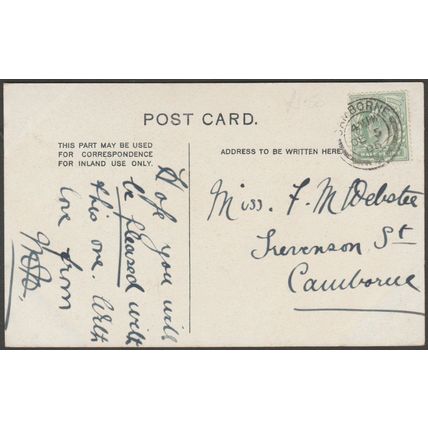 POST CARD.
THIS PART MAY BE USED
FOR CORRESPONDENCE
FOR INLAND USE ONLY.
ADDRESS TO BE WRITTEN HERE
Hope you will
be pleased with
this one. With
love from
Miss. F. M Webster
Trevenson St
Camborne
CAMBORNE